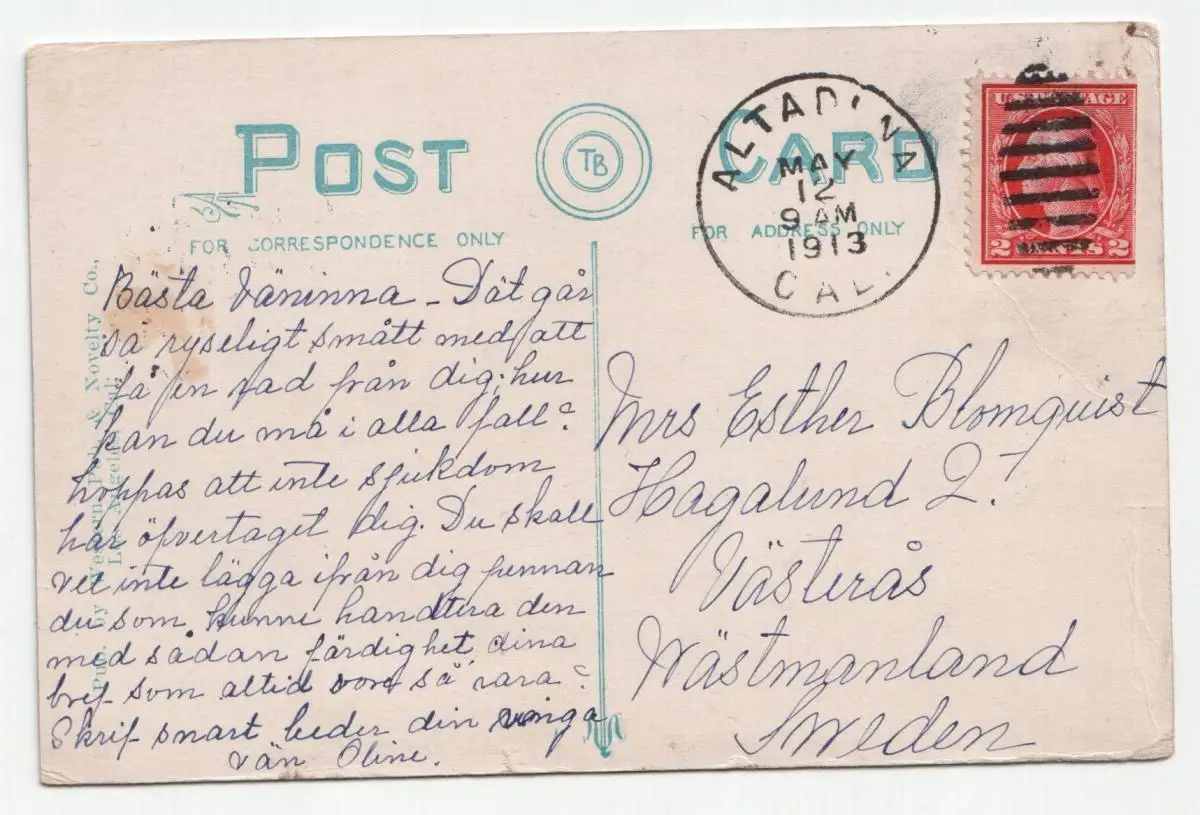 POST CARD
TB
FOR CORRESPONDENCE ONLY
FOR ADDRESS ONLY
ALTADINA
MAY
12
9 AM
1913
CAL.
U.S. POSTAGE
2 CENTS 2
Pub. by Western Pub. & Novelty Co.,
Los Angeles, Cal.
Bästa Väninna – Dät går
så ryseligt smått med att
få en rad från dig; hur
kan du må i alla fall?
hoppas att inte sjukdom
har öfvertaget dig. Du skall
vel inte lägga ifrån dig pennan
du som kunne handtera den
med sådan färdighet dina
bref som altid vore så rara?
Skrif snart beder din
vän Oline.
Mrs Esther Blomquist
Hagalund 2.
Västerås
Wästmanland
Sweden